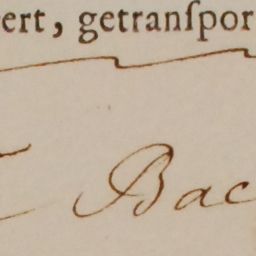 ert, getranſpor
Bac